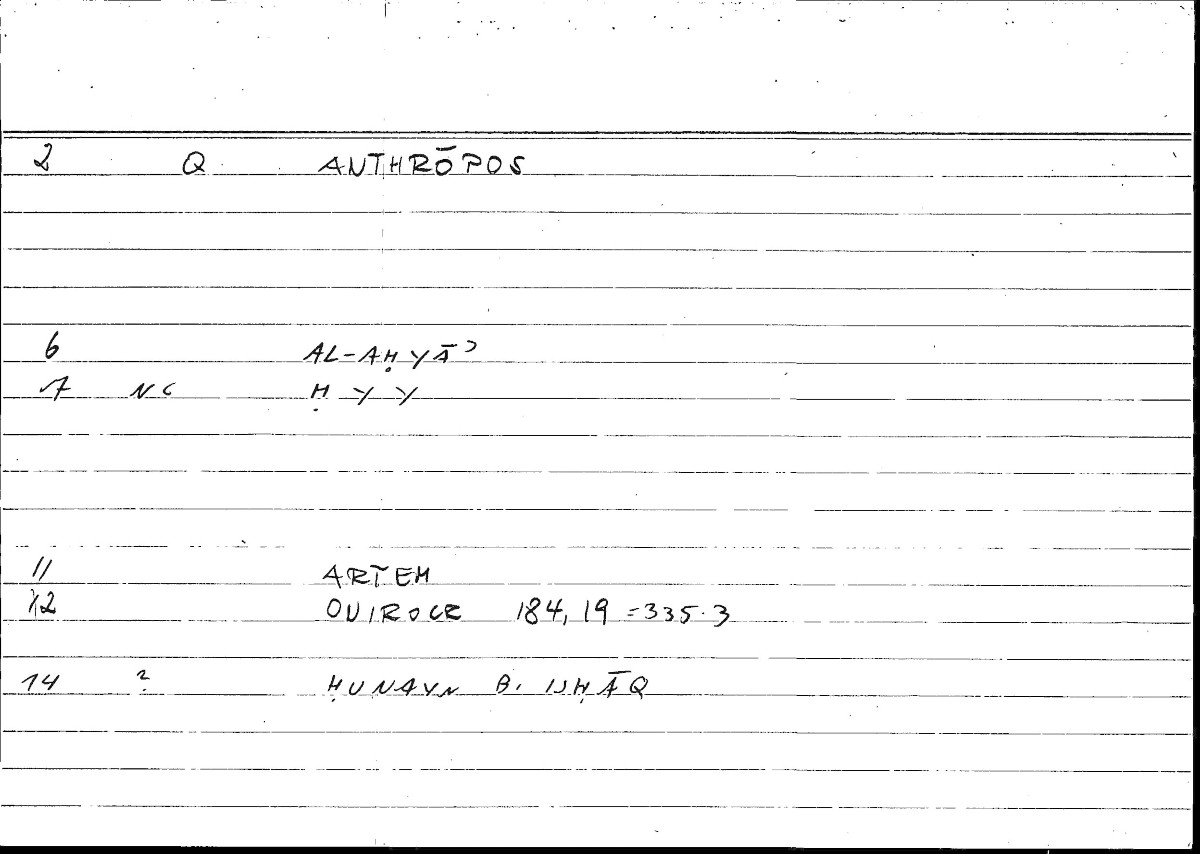 2 Q ANTHRŌPOS
6 AL-AḤYĀʾ
7 NC ḤYY
11 ARTEM
12 OVIROCR 184, 19 = 335.3
14 ? ḤUNAYN B. ISḤĀQ